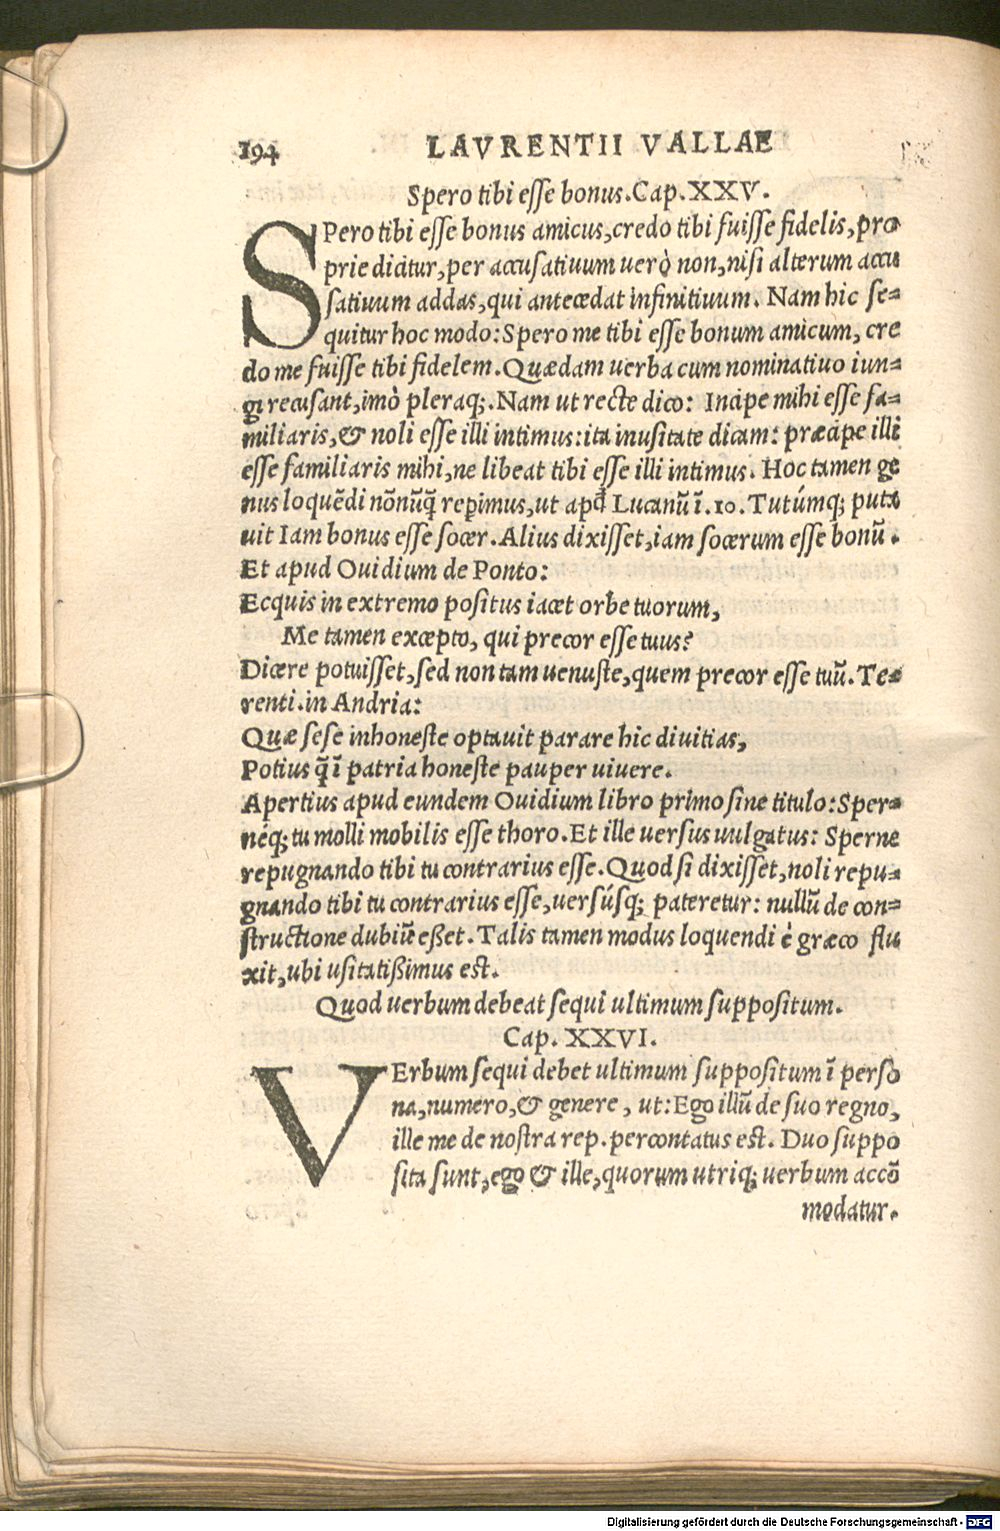 194 LAVRENTII VALLAE
Spero tibi esse bonus. Cap. XXV.
SPero tibi esse bonus amicus, credo tibi fuisse fidelis, pro
prie dicitur, per accusatiuum uerò non, nisi alterum accu
satiuum addas, qui antecedat infinitiuum. Nam hic se=
quitur hoc modo: Spero me tibi esse bonum amicum, cre
do me fuisse tibi fidelem. Quædam uerba cum nominatiuo iun=
gi recusant, imò pleraq;. Nam ut recte dico: Incipe mihi esse fa=
miliaris, & noli esse illi intimus: ita inusitate dicam: præcipe illi
esse familiaris mihi, ne libeat tibi esse illi intimus. Hoc tamen ge
nus loquẽdi nõnũq̃ reperimus, ut apđ Lucanũ ĩ. 10. Tutúmq; puta
uit Iam bonus esse socer. Alius dixisset, iam socerum esse bonũ.
Et apud Ouidium de Ponto:
Ecquis in extremo positus iacet orbe tuorum,
Me tamen excepto, qui precor esse tuus?
Dicere potuisset, sed non tam uenuste, quem precor esse tuũ. Te=
renti. in Andria:
Quæ sese inhoneste optauit parare hic diuitias,
Potius q̃ ĩ patria honeste pauper uiuere.
Apertius apud eundem Ouidium libro primo sine titulo: Sper=
néq; tu molli mobilis esse thoro. Et ille uersus uulgatus: Sperne
repugnando tibi tu contrarius esse. Quod si dixisset, noli repu=
gnando tibi tu contrarius esse, uersúsq; pateretur: nullũ de con=
structione dubiũ eßet. Talis tamen modus loquendi è græco flu
xit, ubi usitatißimus est.
Quod uerbum debeat sequi ultimum suppositum.
Cap. XXVI.
VErbum sequi debet ultimum suppositum ĩ perso
na, numero, & genere, ut: Ego illũ de suo regno,
ille me de nostra rep. percontatus est. Duo suppo
sita sunt, ego & ille, quorum utriq; uerbum accõ
modatur.
Digitalisierung gefördert durch die Deutsche Forschungsgemeinschaft - DFG